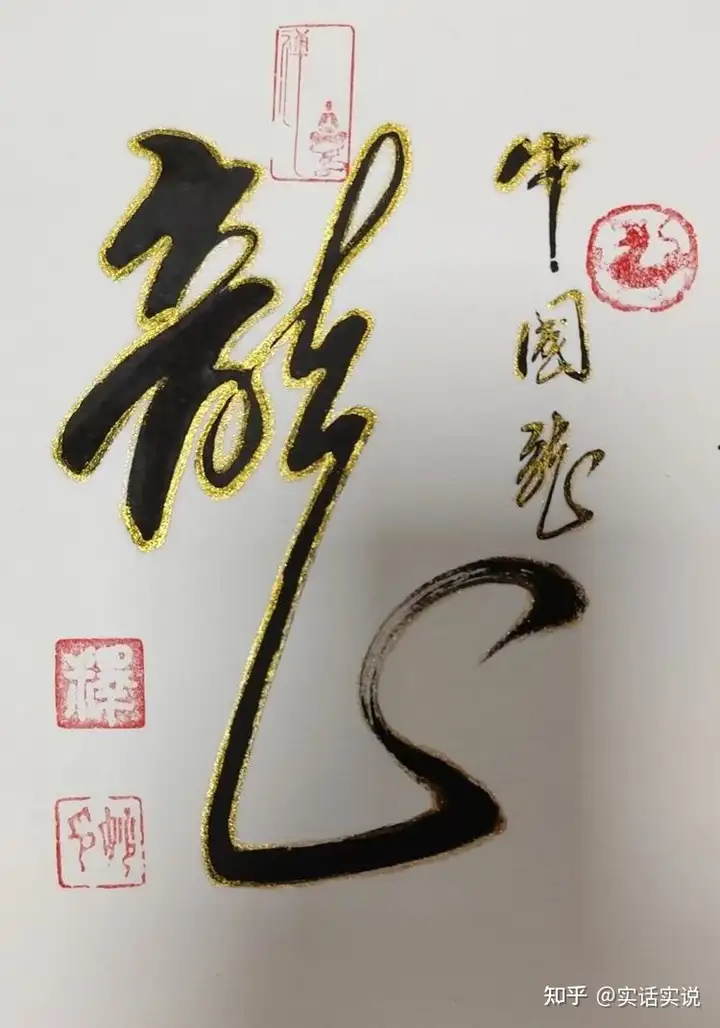 龍
中國龍
禅
釋
知乎 @实话实说